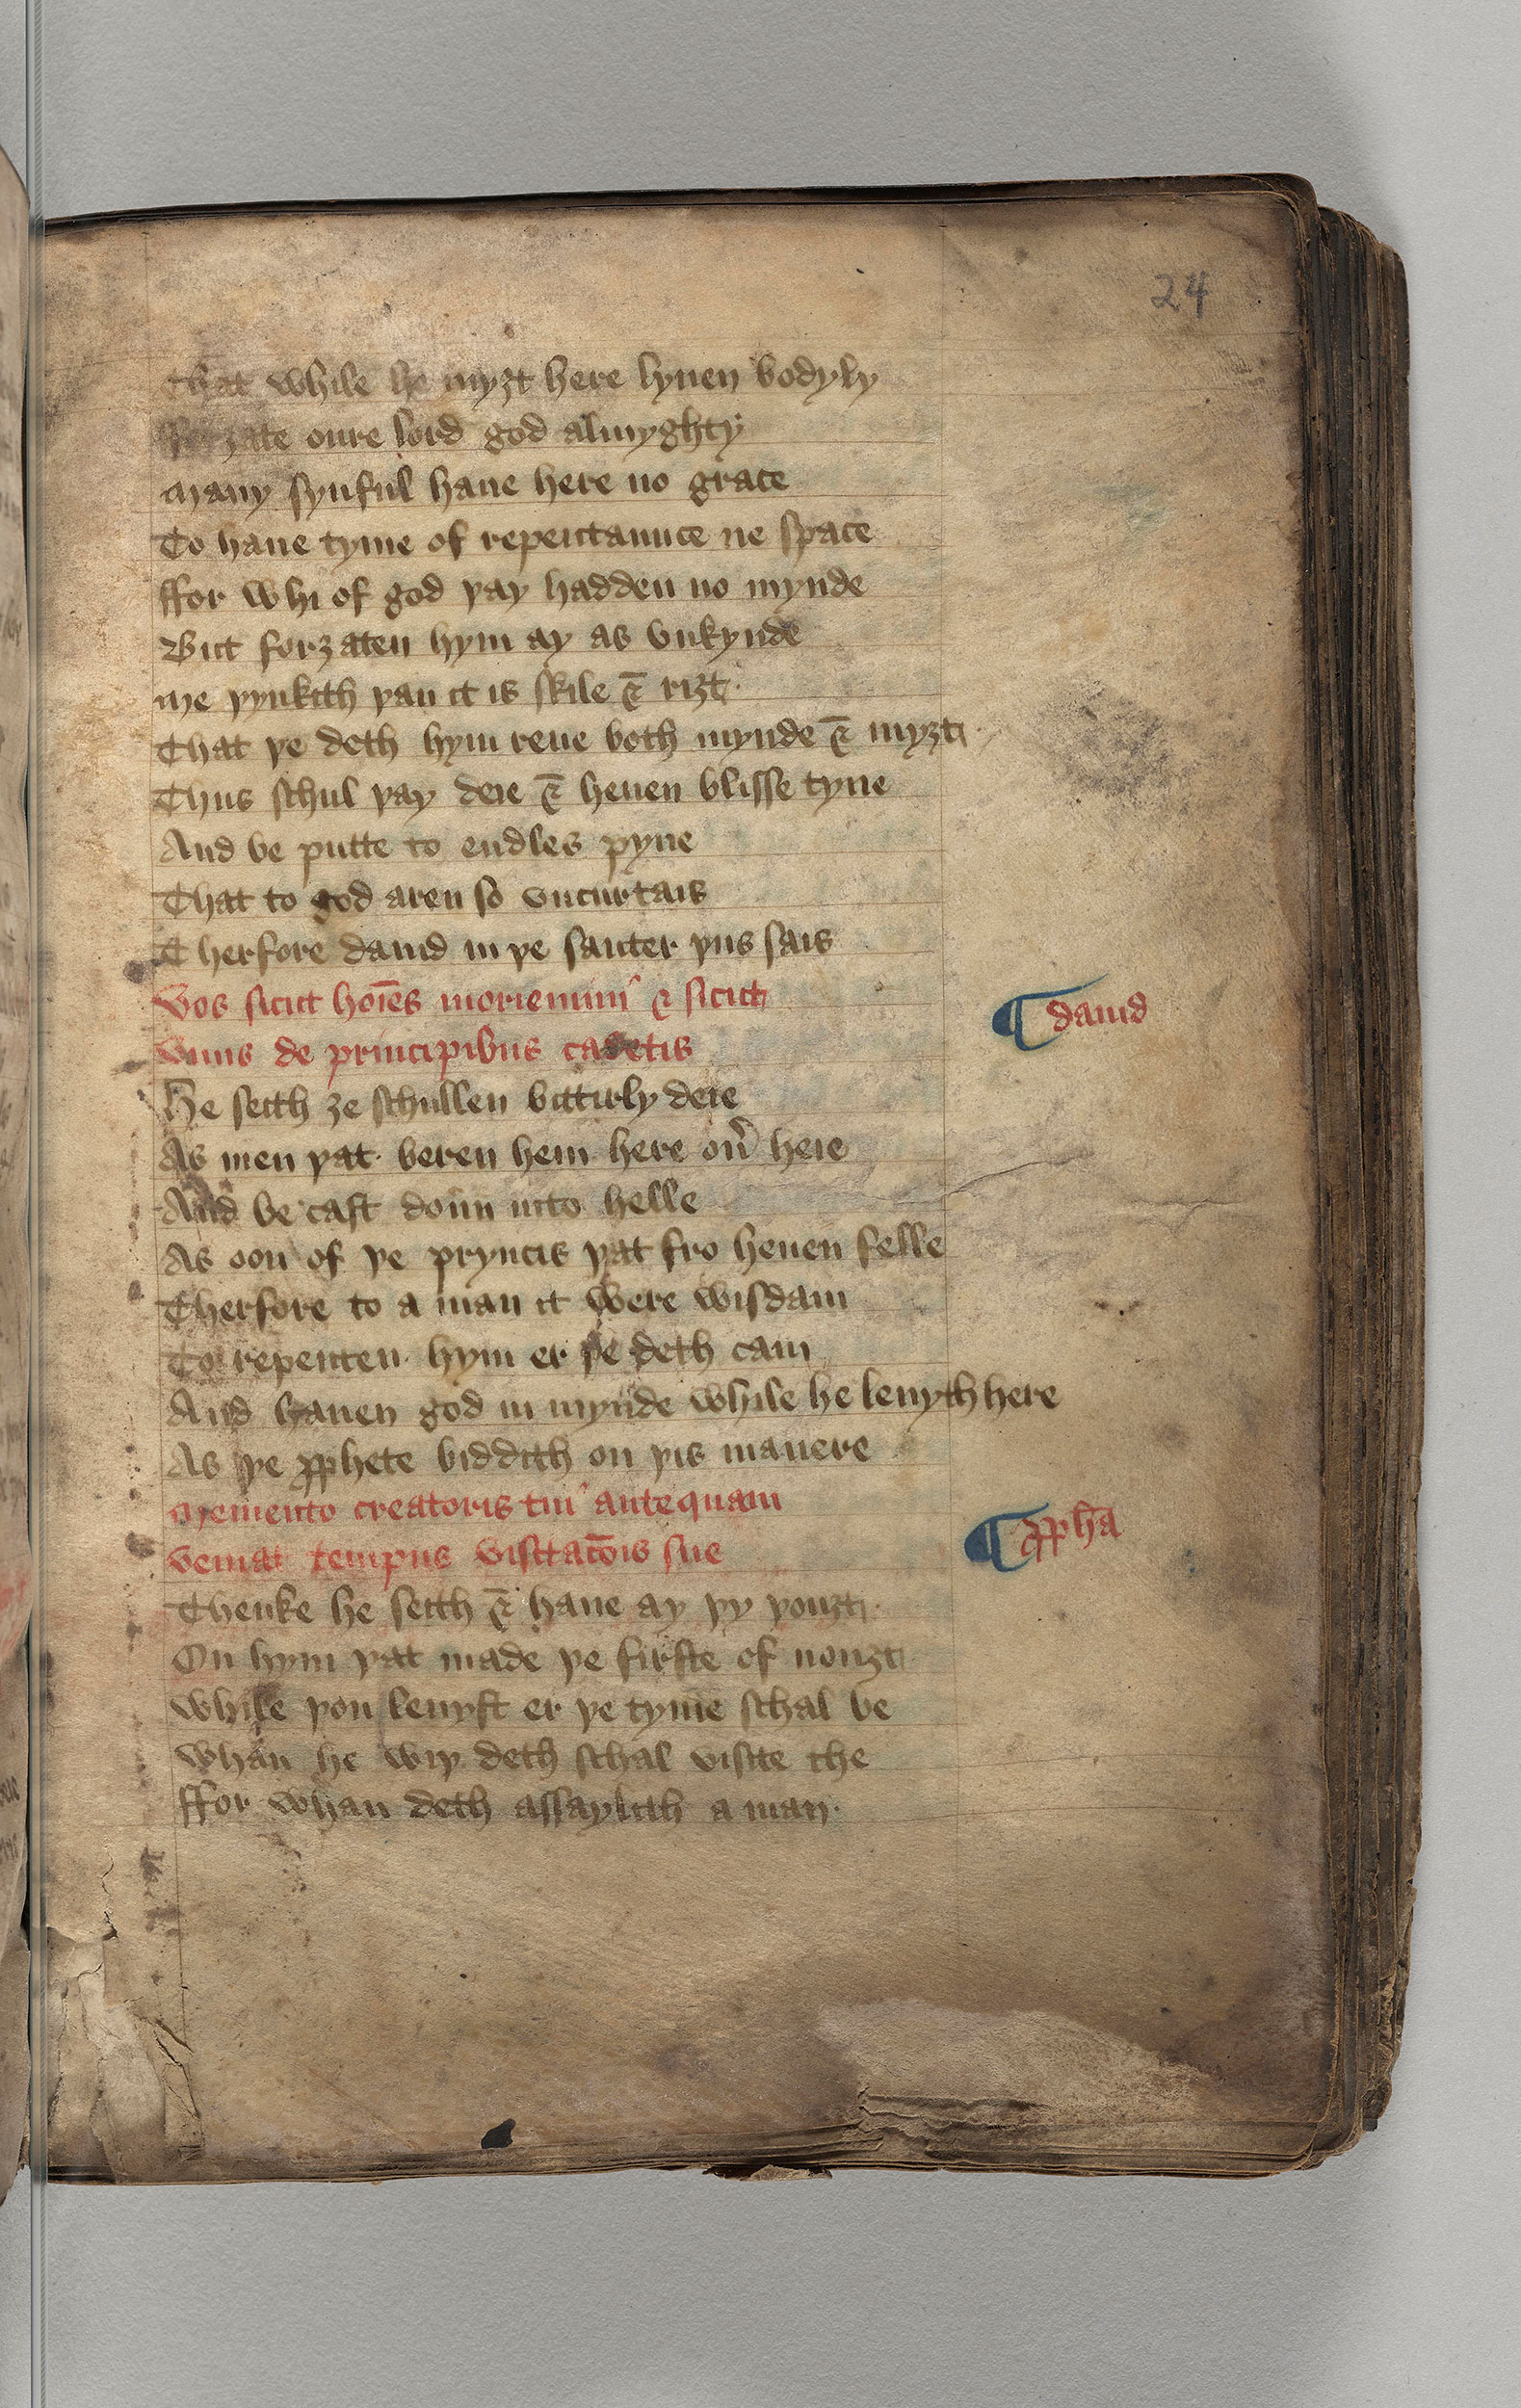 24
That while he myȝt here lyuen bodyly
fforȝate oure lord god almyghty
Many synful haue here no grace
To haue tyme of repentaunce ne space
ffor whi of god þay hadden no mynde
But forȝaten hym ay as vnkynde
Me þynkith þan it is skile & riȝt
That þe deth hym reue both mynde & myȝt
Thus schul þay deie & heuen blisse tyne
And be putte to endles pyne
That to god aren so vncurtais
Therfore dauid in þe sauter þus sais
Vos sicut hoīes moriemini & sicut
¶ dauid
vnus de principibus cadetis
He seith ȝe schullen bittirly deie
As men þat beren hem here ou̓ heie
And be cast doun into helle
As oon of þe pryncis þat fro heuen felle
Therfore to a man it were wisdam
To repenten hym er þe deth cam
And hauen god in mynde while he leuyth here
As þe ꝓphete biddith on þis manere
Memento creatoris tui antequam
¶ ꝓpha
veniat tempus visitac̄ois sue
Thenke he seith & haue ay þy þouȝt
On hym þat made þe firste of nouȝt
While þou leuyst er þe tyme schal be
Whan he wiþ deth schal visite the
ffor whan deth assaylith a man